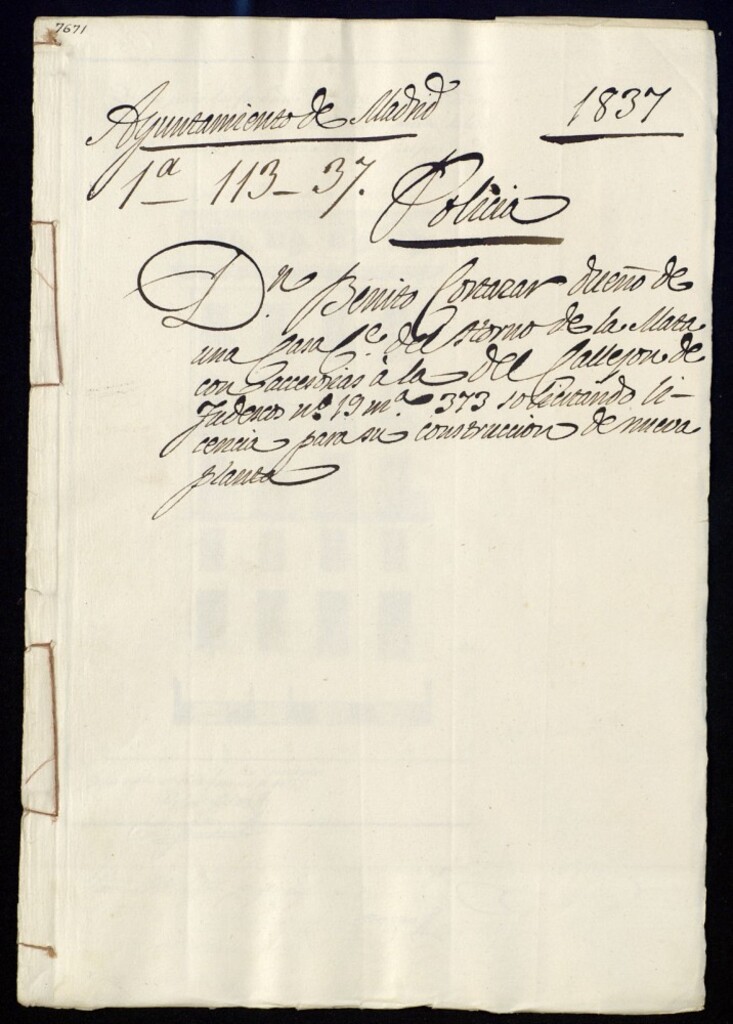 7671
Ayuntamiento de Madrid 1837
1ª 113-37.
Policia
D.n Benito Cortazar dueño de
una Casa C.e del Horno de la Mata
con accesorias à la del Callejon de
Tudescos nº 19 m.ª 373 solicitando li-
cencia para su construccion de nueva
planta